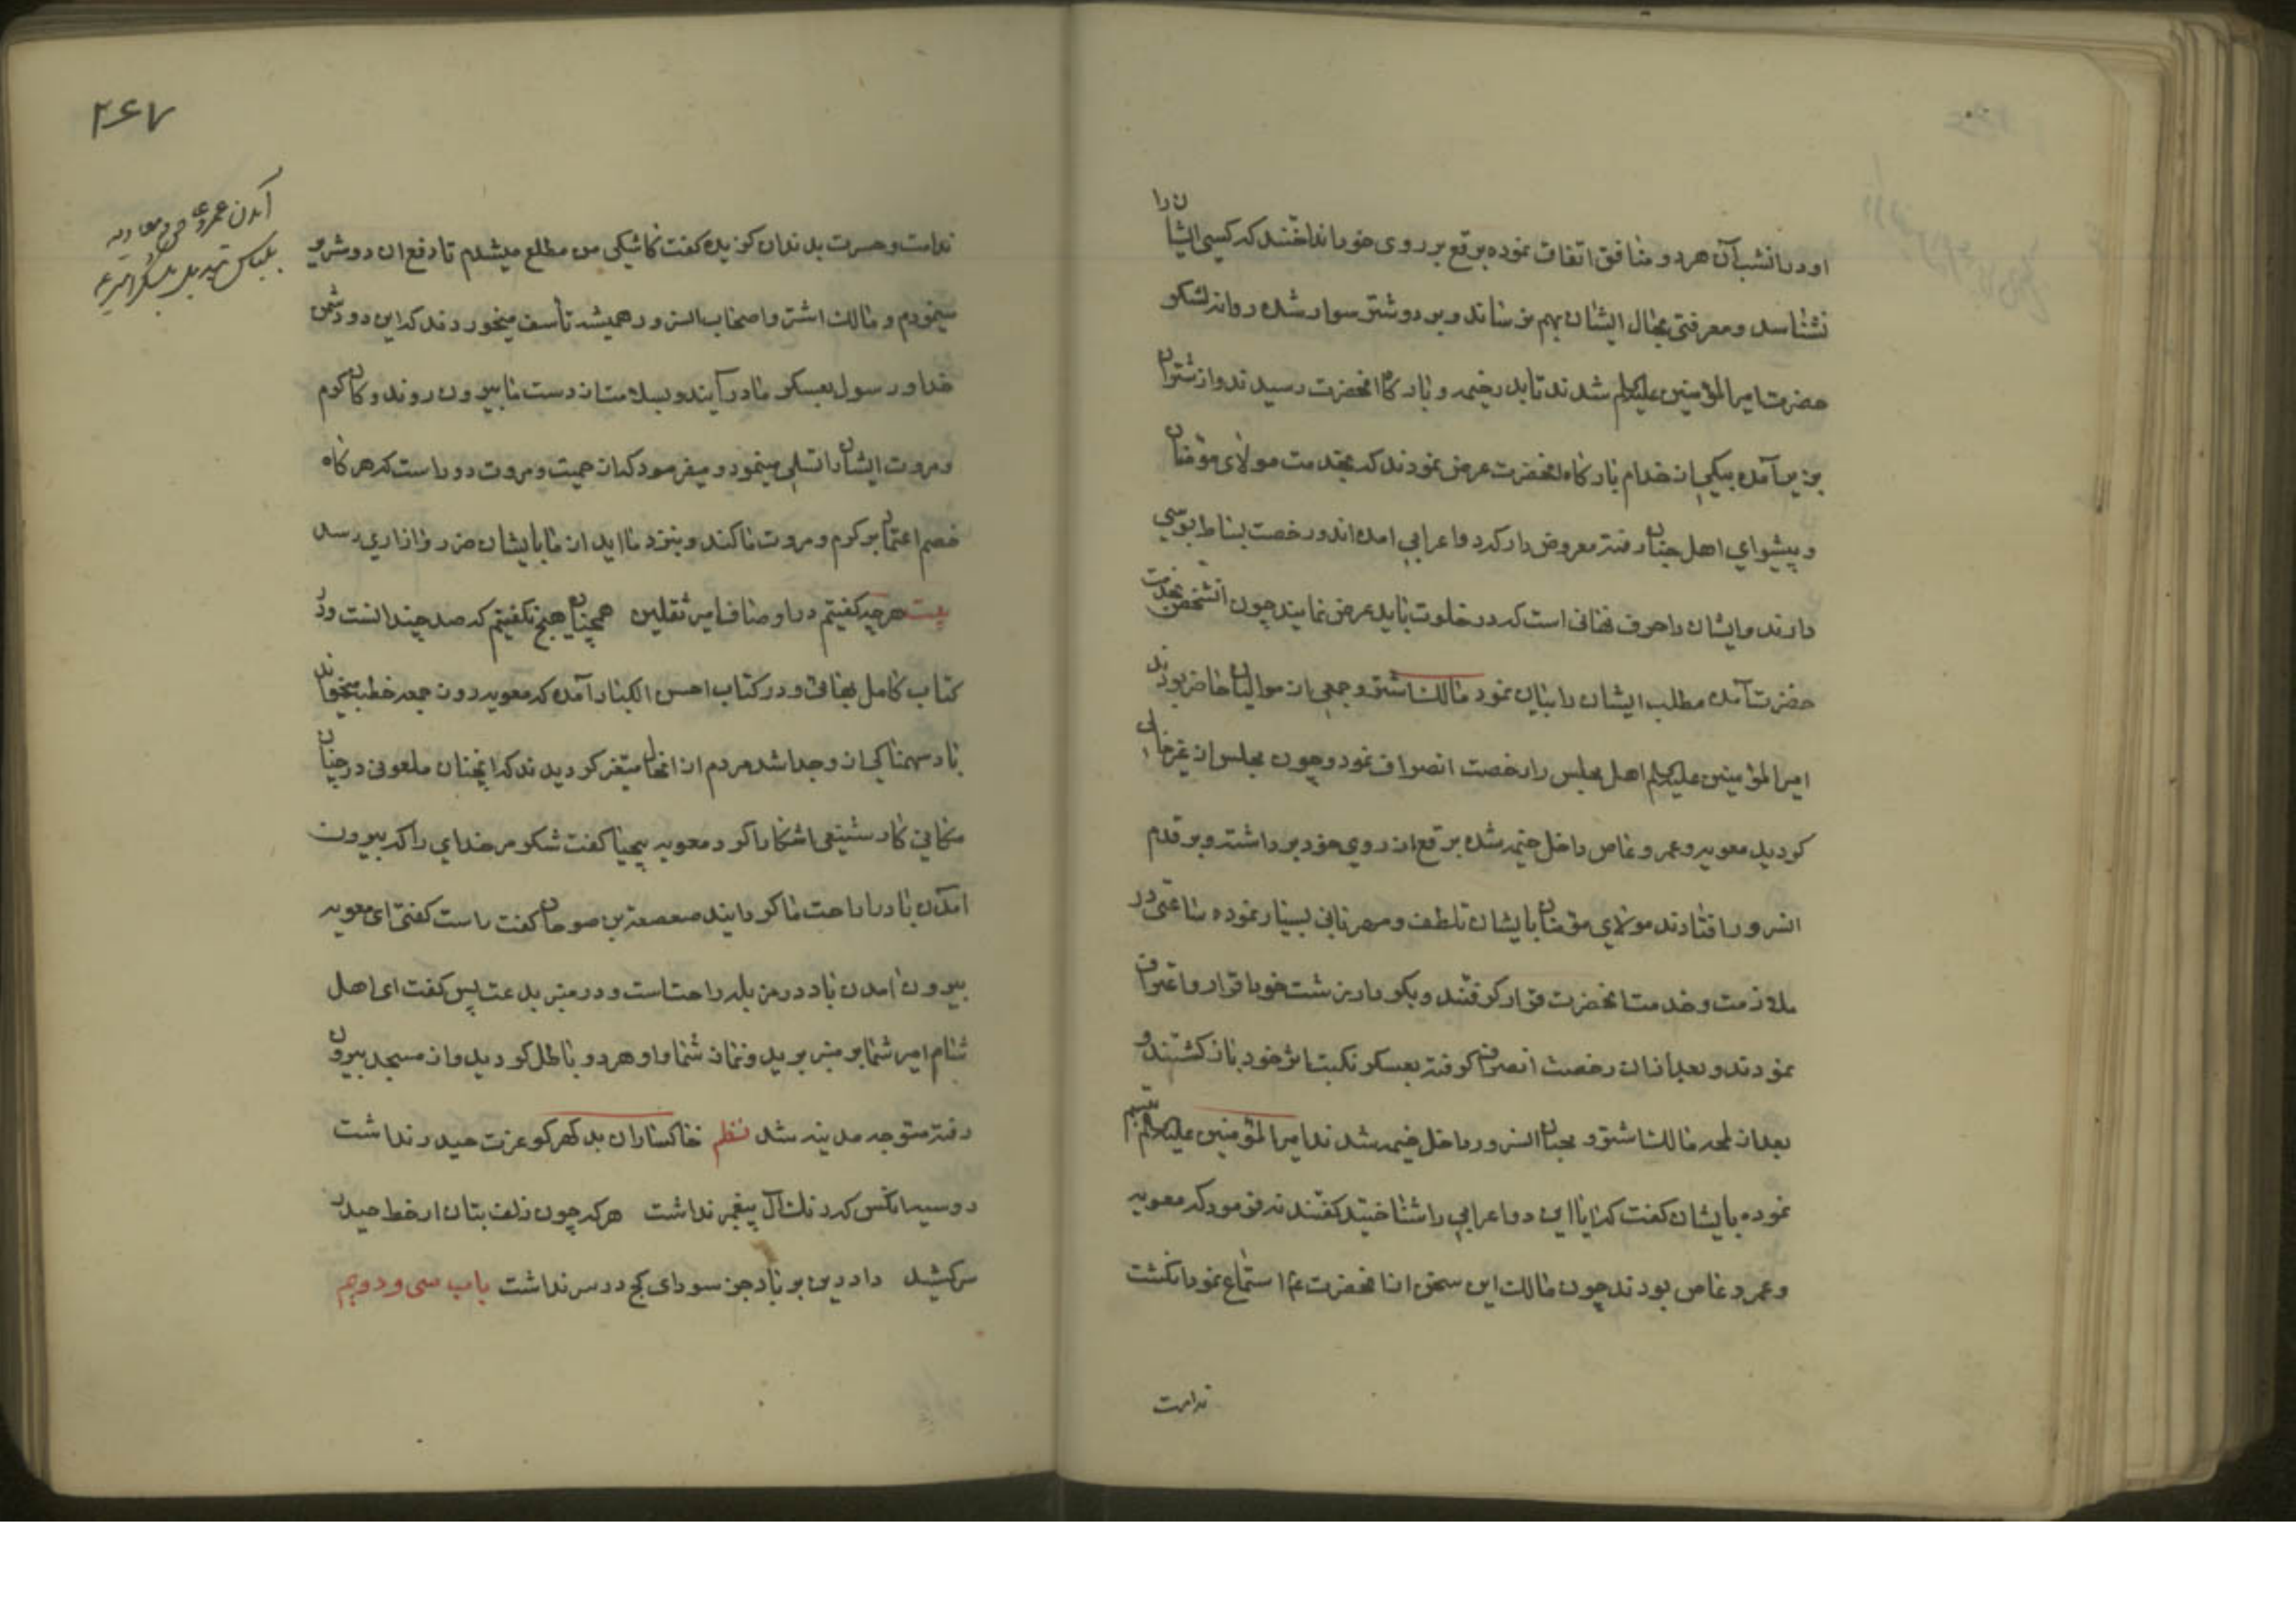 او در انشب آن هر دو منافق اتفاق نموده برقع بر روی خود انداختند که کسی ایشان را
نشناسد و معرفتی بحال ایشان بهم نرساند و بر دو شتر سوار شده روانه لشکر
حضرت امیرالمؤمنین علیه‌السلام شدند تا بدر خیمه و بارکاه انحضرت رسیدند و از شتران
بزیر آمده بیکی از خدام بارکاه انحضرت عرض نمودند که بخدمت مولای مؤمنان
و پیشوای اهل جنان رفته معروض دار که دو اعرابی امده‌اند و رخصت بساط بوسی
دارند و ایشان را حرف نهانی است که در خلوت باید عرض نمایند چون انشخص بخدمت
حضرت آمده مطلب ایشان را بیان نمود مالک اشتر و جمعی از موالیان حاضر بودند
امیرالمؤمنین علیه‌السلام اهل مجلس را رخصت انصراف نمود و چون مجلس از غیر خالی
کردید معویه و عمرو عاص داخل خیمه شده برقع از روی خود برداشته و بر قدم
السرور افتادند مولای مؤمنان بایشان تلطف و مهربانی بسیار نموده ساعتی در
ملازمت و خدمت انحضرت قرار کرفتند و بکردار زشت خود اقرار و اعتراف
نمودند و بعد از ان رخصت انصراف کرفته بعسکر نکبت اثر خود باز کشتند و
بعد از لمحه مالک اشتر و محبان السرور داخل خیمه شدند امیرالمؤمنین علیه‌السلام تبسم
نموده بایشان کفت که ایا این دو اعرابی را شناختید کفتند نه فرمود که معویه
و عمرو عاص بودند چون مالک این سخن از انحضرت ع استماع نمود انکشت
ندامت
۲۶۷
آمدن عمرو عاص و معاویه
بلباس تبدیل بلشکر امیر ع
ندامت و حسرت بدندان کزیده کفت کاشیکی من مطلع میشدم تا دفع ان دو شریر
مینمودم و مالک اشتر و اصحاب السرور همیشه تأسف میخوردند که این دو دشمن
خدا و رسول بعسکر ما در آیند و بسلامت از دست ما بیرون روند و کان کرم
و مروت ایشان را تسلی مینمود و میفرمود که از حمیت و مروت دور است که هر کاه
خصم اعتماد بر کرم و مروت ما کند و بنزد ما اید از ما بایشان ضرر و ازاری رسد
بیت هر چه کفتیم در اوصاف امیر ثقلین همچنان هیچ نکفتیم که صد چندانست و در
کتاب کامل بهائی و در کتاب احسن الکبار آمده که معویه روز جمعه خطبه میخواند
باد سهمناکی از وجدا شد مردم از انحال متغیر کردیدند که انچنان ملعونی در چنان
مکانی کار شنیعی اشکارا کرد معویه بیحیا کفت شکر مر خدای را که بیرون
امدن باد را راحت ما کردانید صعصعة بن صوحان کفت راست کفتی ای معویه
بیرون امدن باد در مزبله راحت است و در منبر بدعت پس کفت ای اهل
شام امیر شما بر منبر برید و نماز شما و او هر دو باطل کردید و از مسجد بیرون
رفته متوجه مدینه شد نظم خاکسار ان بد کهر کو عزت حیدر نداشت
رو سیه انکس که در نک آل پیغمبر نداشت هر که چون زلف بتان از خط حیدر
سر کشید داد دین بر باد جز سودای کج در سر نداشت باب سی و دویم